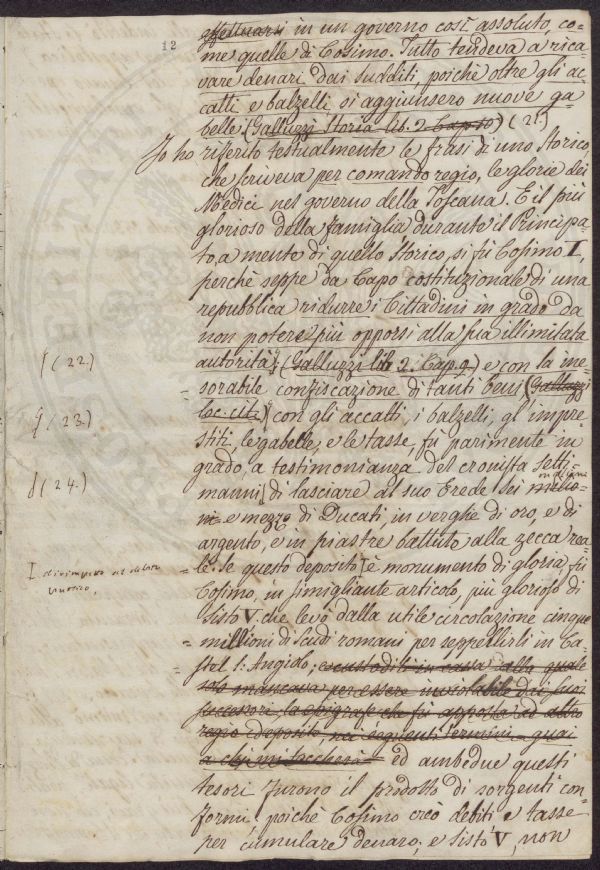 12
effettuarsi in un governo così assoluto, co=
me quelle di Cosimo. Tutto tendeva a rica
vare denari dai sudditi, poichè oltre gli ac
catti e balzelli si aggiunsero nuove ga
belle. (Galluzzi Storia lib. 2. Cap. 10) (21.)
Io ho riferito testualmente le frasi di uno Storico
che scriveva per comando regio, le glorie dei
Medici nel governo della Toscana. E il più
glorioso della famiglia durante il Principa-
to, a mente di quello Storico, si fù Cosimo I,
perchè seppe da Capo costituzionale di una
repubblica ridurre i Cittadini in grado da
non potere più opporsi alla sua illimitata
autorità; (Galluzzi lib 2. Cap. 9.) e con la ine
(22.)
= sorabile confiscazione di tanti beni (Galluzzi
loc. cit.) con gli accatti, i balzelli, gl'impre-
(23.)
stiti, le gabelle, e le tasse, fù parimente in
grado, a testimonianza del cronista Setti-
manni di lasciare al suo Erede sei milio-
(24.)
ni e mezzo di Ducati, in verghe di oro, e di
argento, e in piastre battute alla zecca rea
= le. Se questo deposito è monumento di gloria, fù
Cosimo, in simigliante articolo, più glorioso di
= Sisto V. che levò dalla utile circolazione cinque
= millioni di Scudi romani per seppellirli in Ca-
= stel S. Angiolo; e custoditi in cassa alla quale
solo mancava per essere inviolabile dai suoi
successori, la epigrafe che fù apposta ad altro
regio deposito, nei seguenti termini = guai
a chi mi toccherà = ed ambedue questi
tesori furono il prodotto di sorgenti con
formi poichè Cosimo creò debiti e tasse
per cumulare denaro; e Sisto V, non